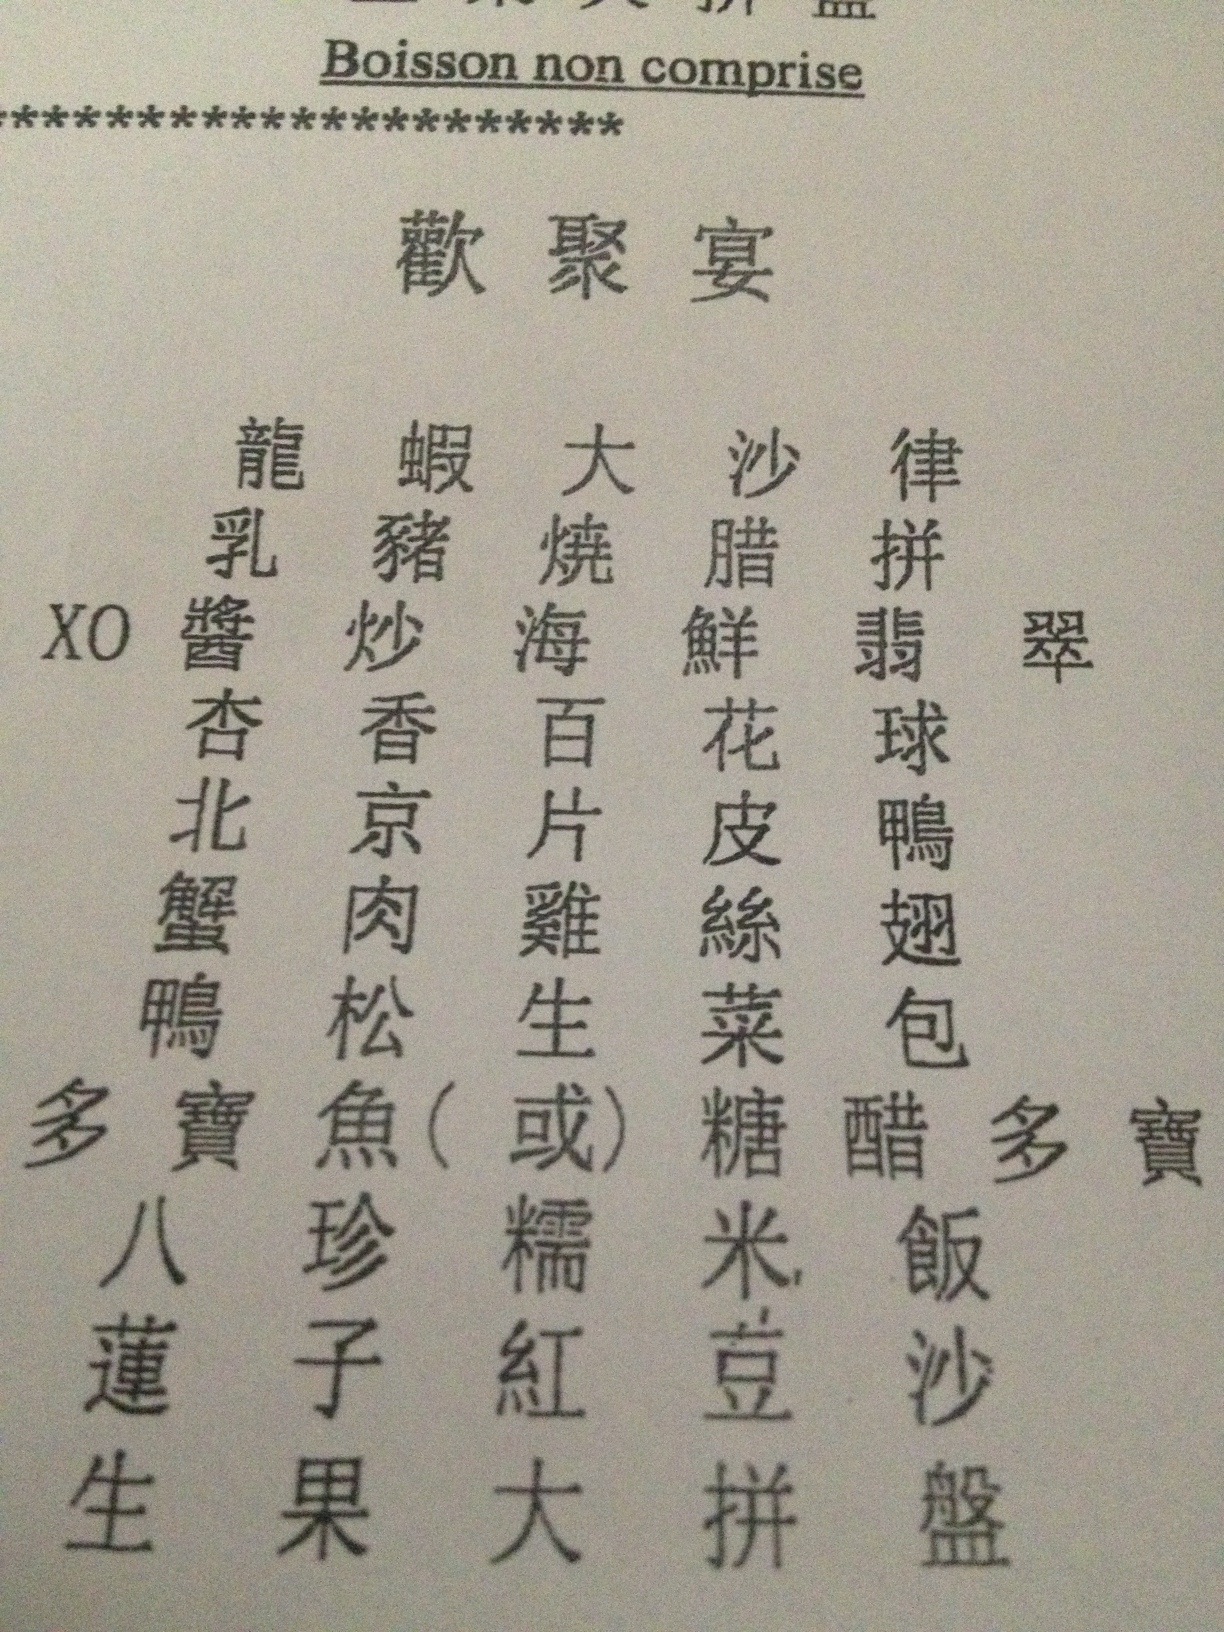 生果大拼盤
Boisson non comprise
********************
歡聚宴
龍蝦大沙律
乳豬燒腊拼
XO醬炒海鮮翡翠
杏香百花球
北京片皮鴨
蟹肉雞絲翅
鴨松生菜包
多寶魚(或)糖醋多寶
八珍糯米飯
蓮子紅荳沙
生果大拼盤